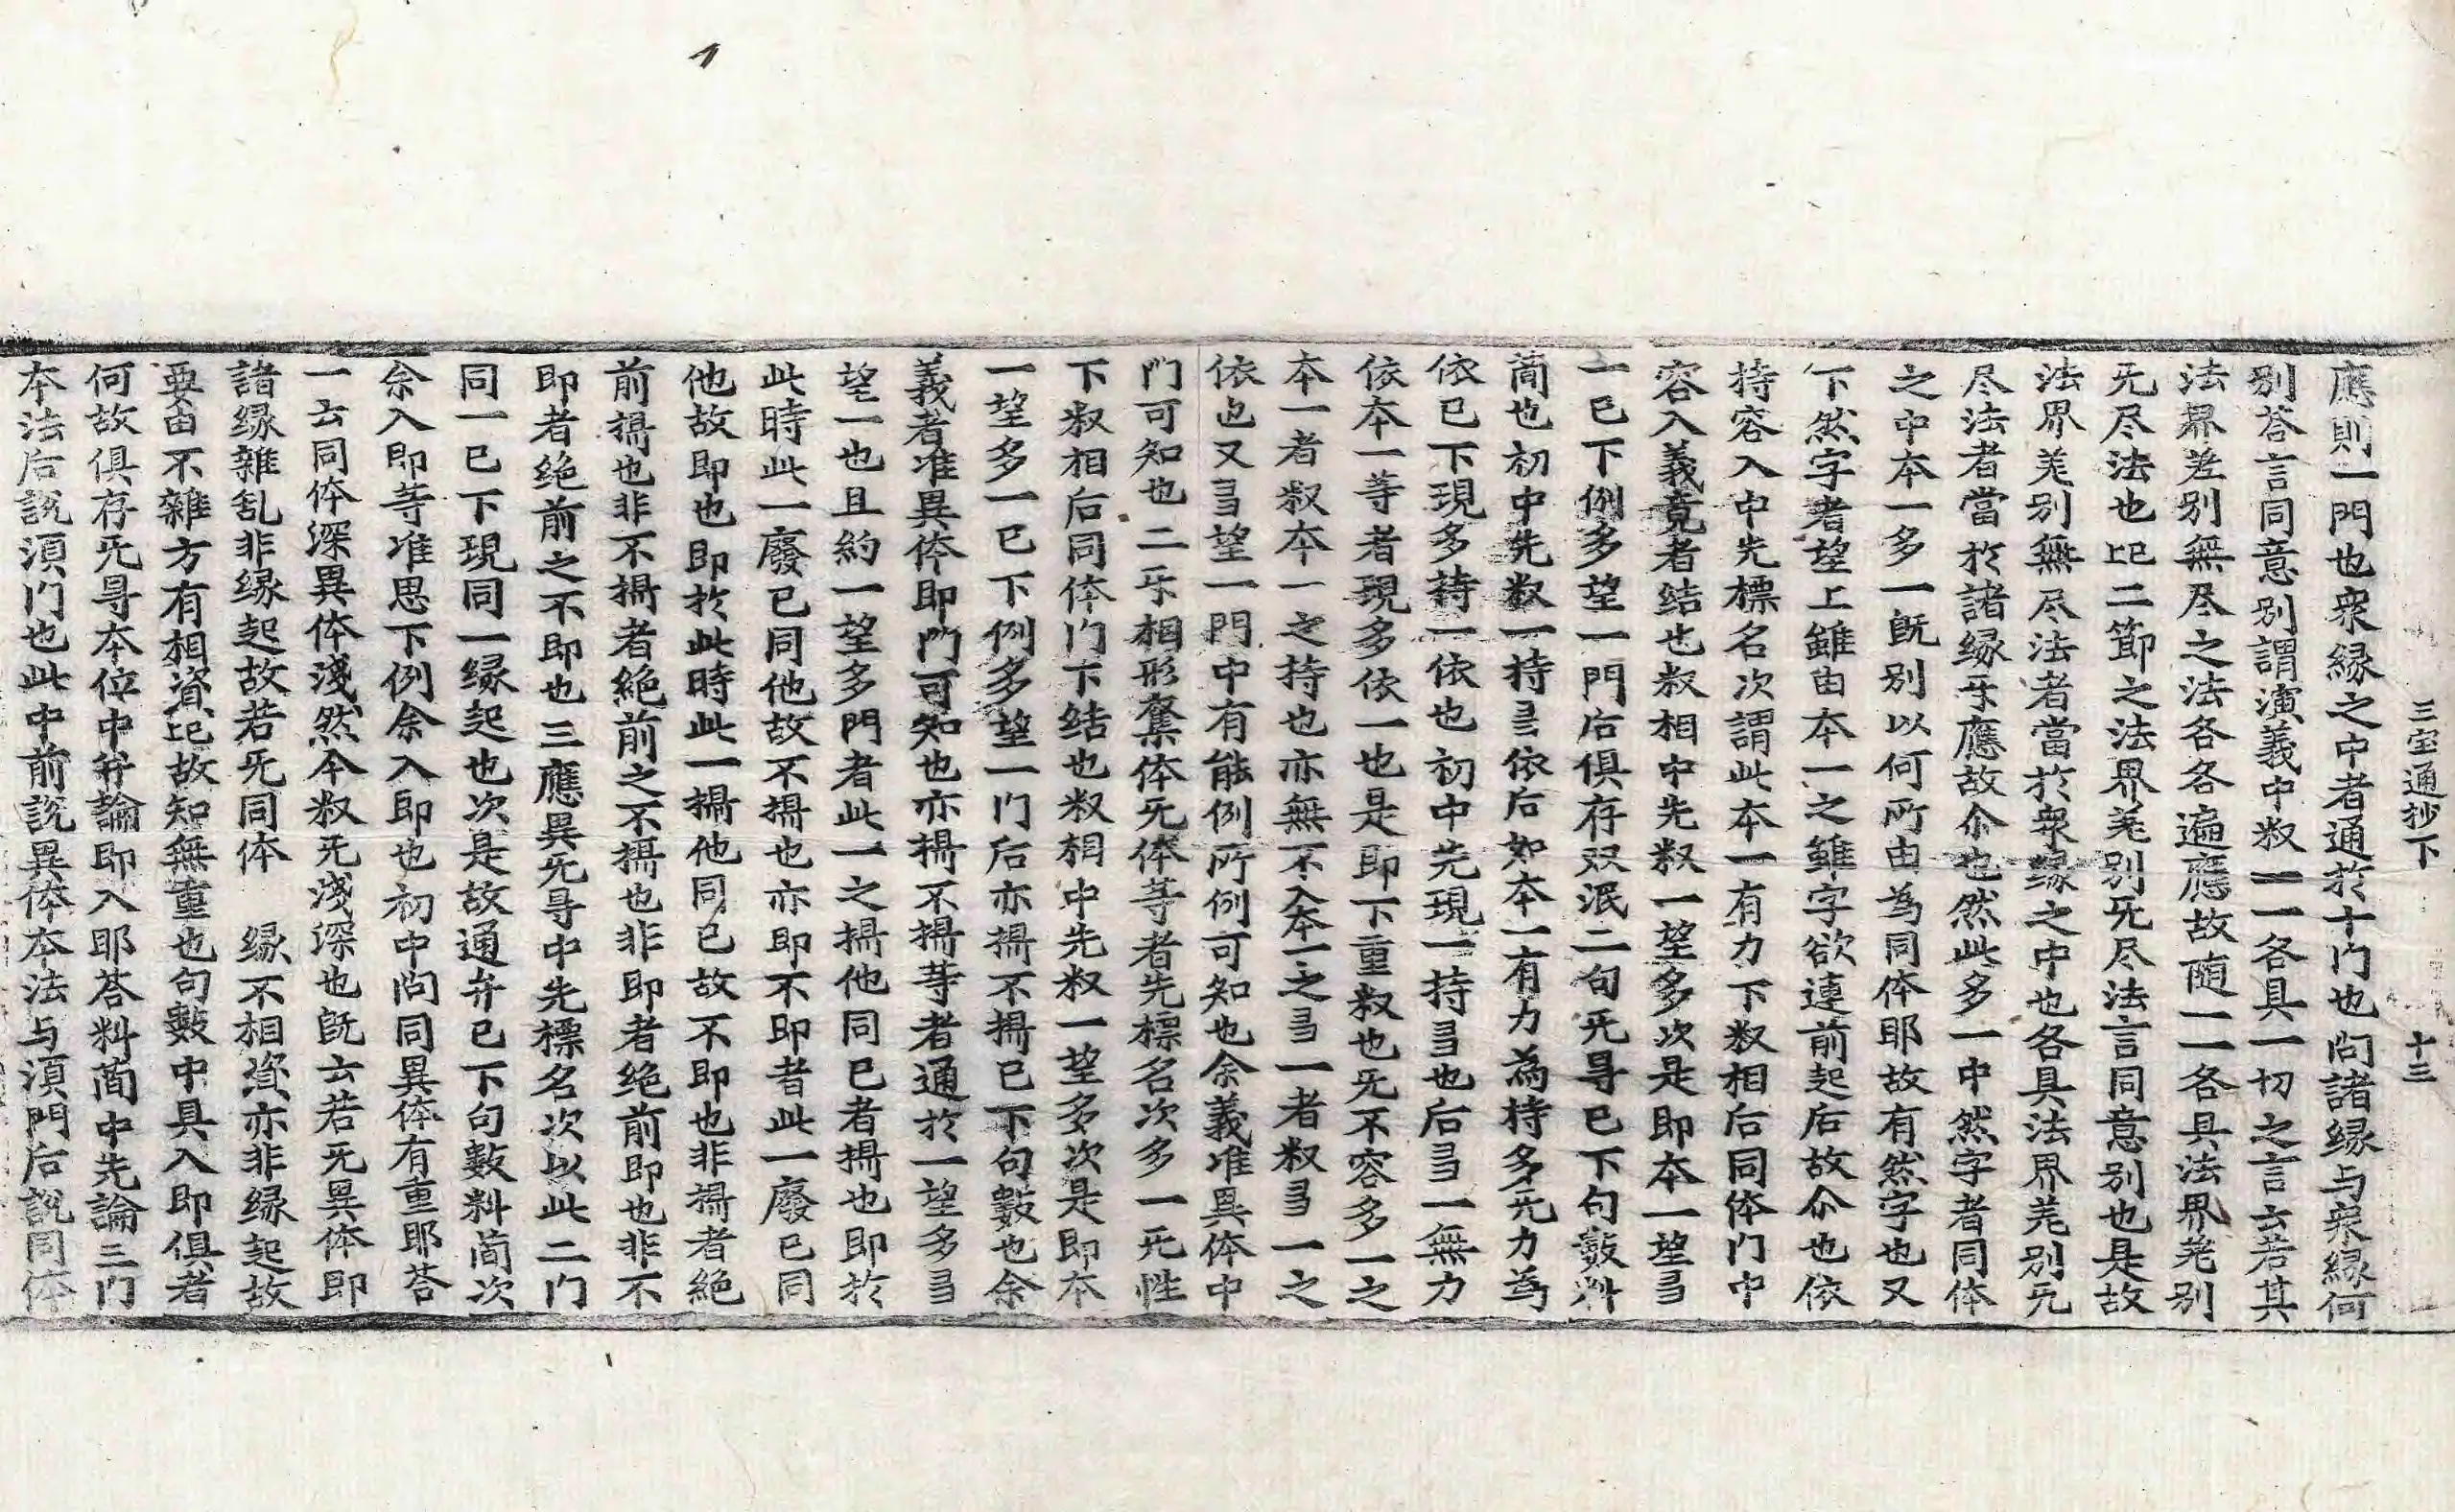 三宝通抄下　十三
應則一門也衆縁之中者通於十门也问諸縁与衆縁何
别荅言同意别謂演義中叙一一各具一切之言云若其
法界差别無尽之法各各遍應故随一一各具法界差别
无尽法也比二節之法界差别无尽法言同意别也是故
法界差别無尽法者當於衆縁之中也各具法界差别无
尽法者當於諸縁㸦應故尒也然此多一中然字者同体
之中本一多一既别以何所由為同体耶故有然字也又
下然字者望上雖由本一之雖字欲連前起后故尒也依
持容入中先標名次謂此本一有力下叙相后同体门中
容入義竟者结也叙相中先叙一望多次是即本一望多
一已下例多望一門后俱存双泯二句无㝵已下句數料
简也初中先叙一持多依后如本一有力為持多无力為
依已下現多持一依也初中先現一持多也后多一無力
依本一等者現多依一也是即下重叙也无不容多一之
本一者叙本一之持也亦無不入本一之多一者叙多一之
依也又多望一門中有能例所例可知也余義准具体中
门可知也二㸦相形奪体无体等者先標名次多一无性
下叙相后同体门下结也叙相中先叙一望多次是即本
一望多一已下例多望一门后亦攝不攝已下句數也余
義者准異体即門可知也亦攝不攝等者通於一望多多
望一也且約一望多門者此一之攝他同已者攝也即於
此時此一廢已同他故不攝也亦即不即者此一廢已同
他故即也即於此時此一攝他同已故不即也非攝者絶
前攝也非不攝者絶前之不攝也非即者绝前即也非不
即者绝前之不即也三應異无㝵中先標名次以此二门
同一已下現同一縁起也次是故通弁已下句數料简次
余入即等准思下例余入即也初中问同異体有重耶荅
一云同体深異体淺然今叙无淺深也旣云若无異体即
諸縁雜乱非縁起故若无同体　縁不相資亦非縁起故
要由不雜方有相資比故知無重也句數中具入即俱者
何故俱存无㝵本位中弁論即入耶荅料简中先論三门
本法后說湏门也此中前說異体本法与湏門后說同体